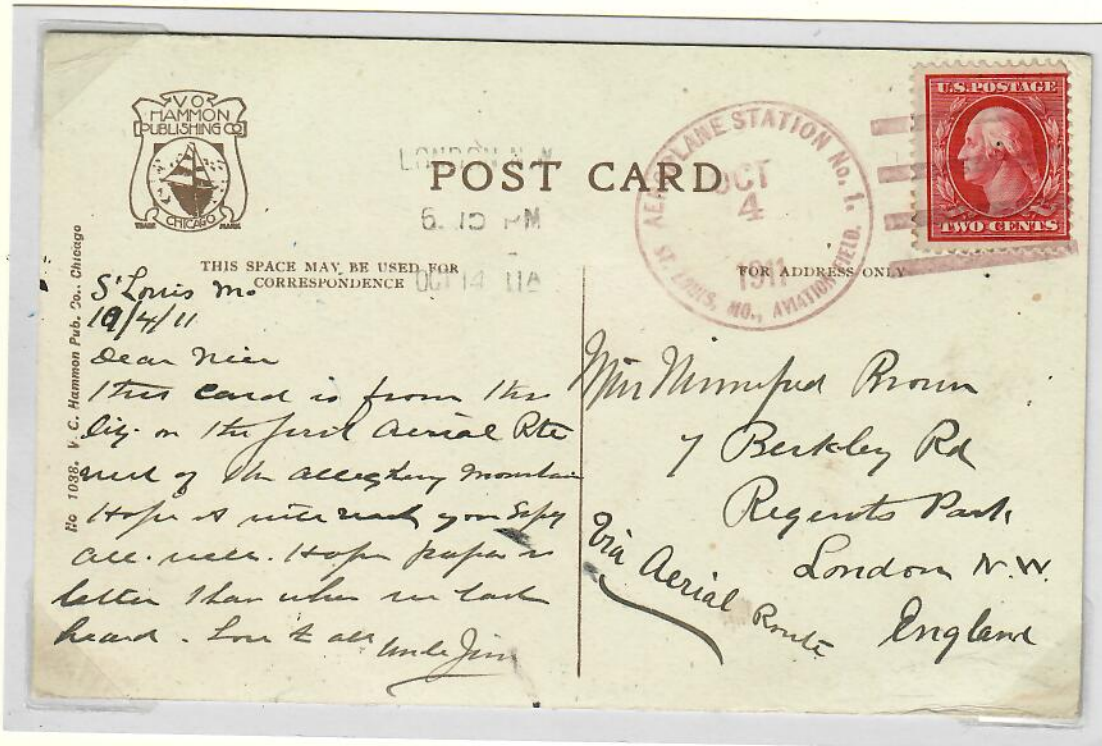 V.O.
HAMMON
PUBLISHING CO
CHICAGO
TRADE MARK
POST CARD
LONDON N.W.
6.15 PM
OCT 14 11
AEROPLANE STATION No. 1.
OCT
4
1911
ST. LOUIS, MO., AVIATION FIELD.
U.S. POSTAGE
TWO CENTS
THIS SPACE MAY BE USED FOR
CORRESPONDENCE
FOR ADDRESS ONLY
No 1038. V. C. Hammon Pub. Co., Chicago
St Louis Mo
10/4/11
Dear
This card is from the
on the first Aerial Rte
west of the Allegheny Mountain
Hope it will reach you Safely
all well. Hope papa is
better than when we last
heard. Love to all Uncle Jim
Miss Winnifred Brown
7 Berkley Rd
Regents Park
London N.W.
England
Via Aerial Route